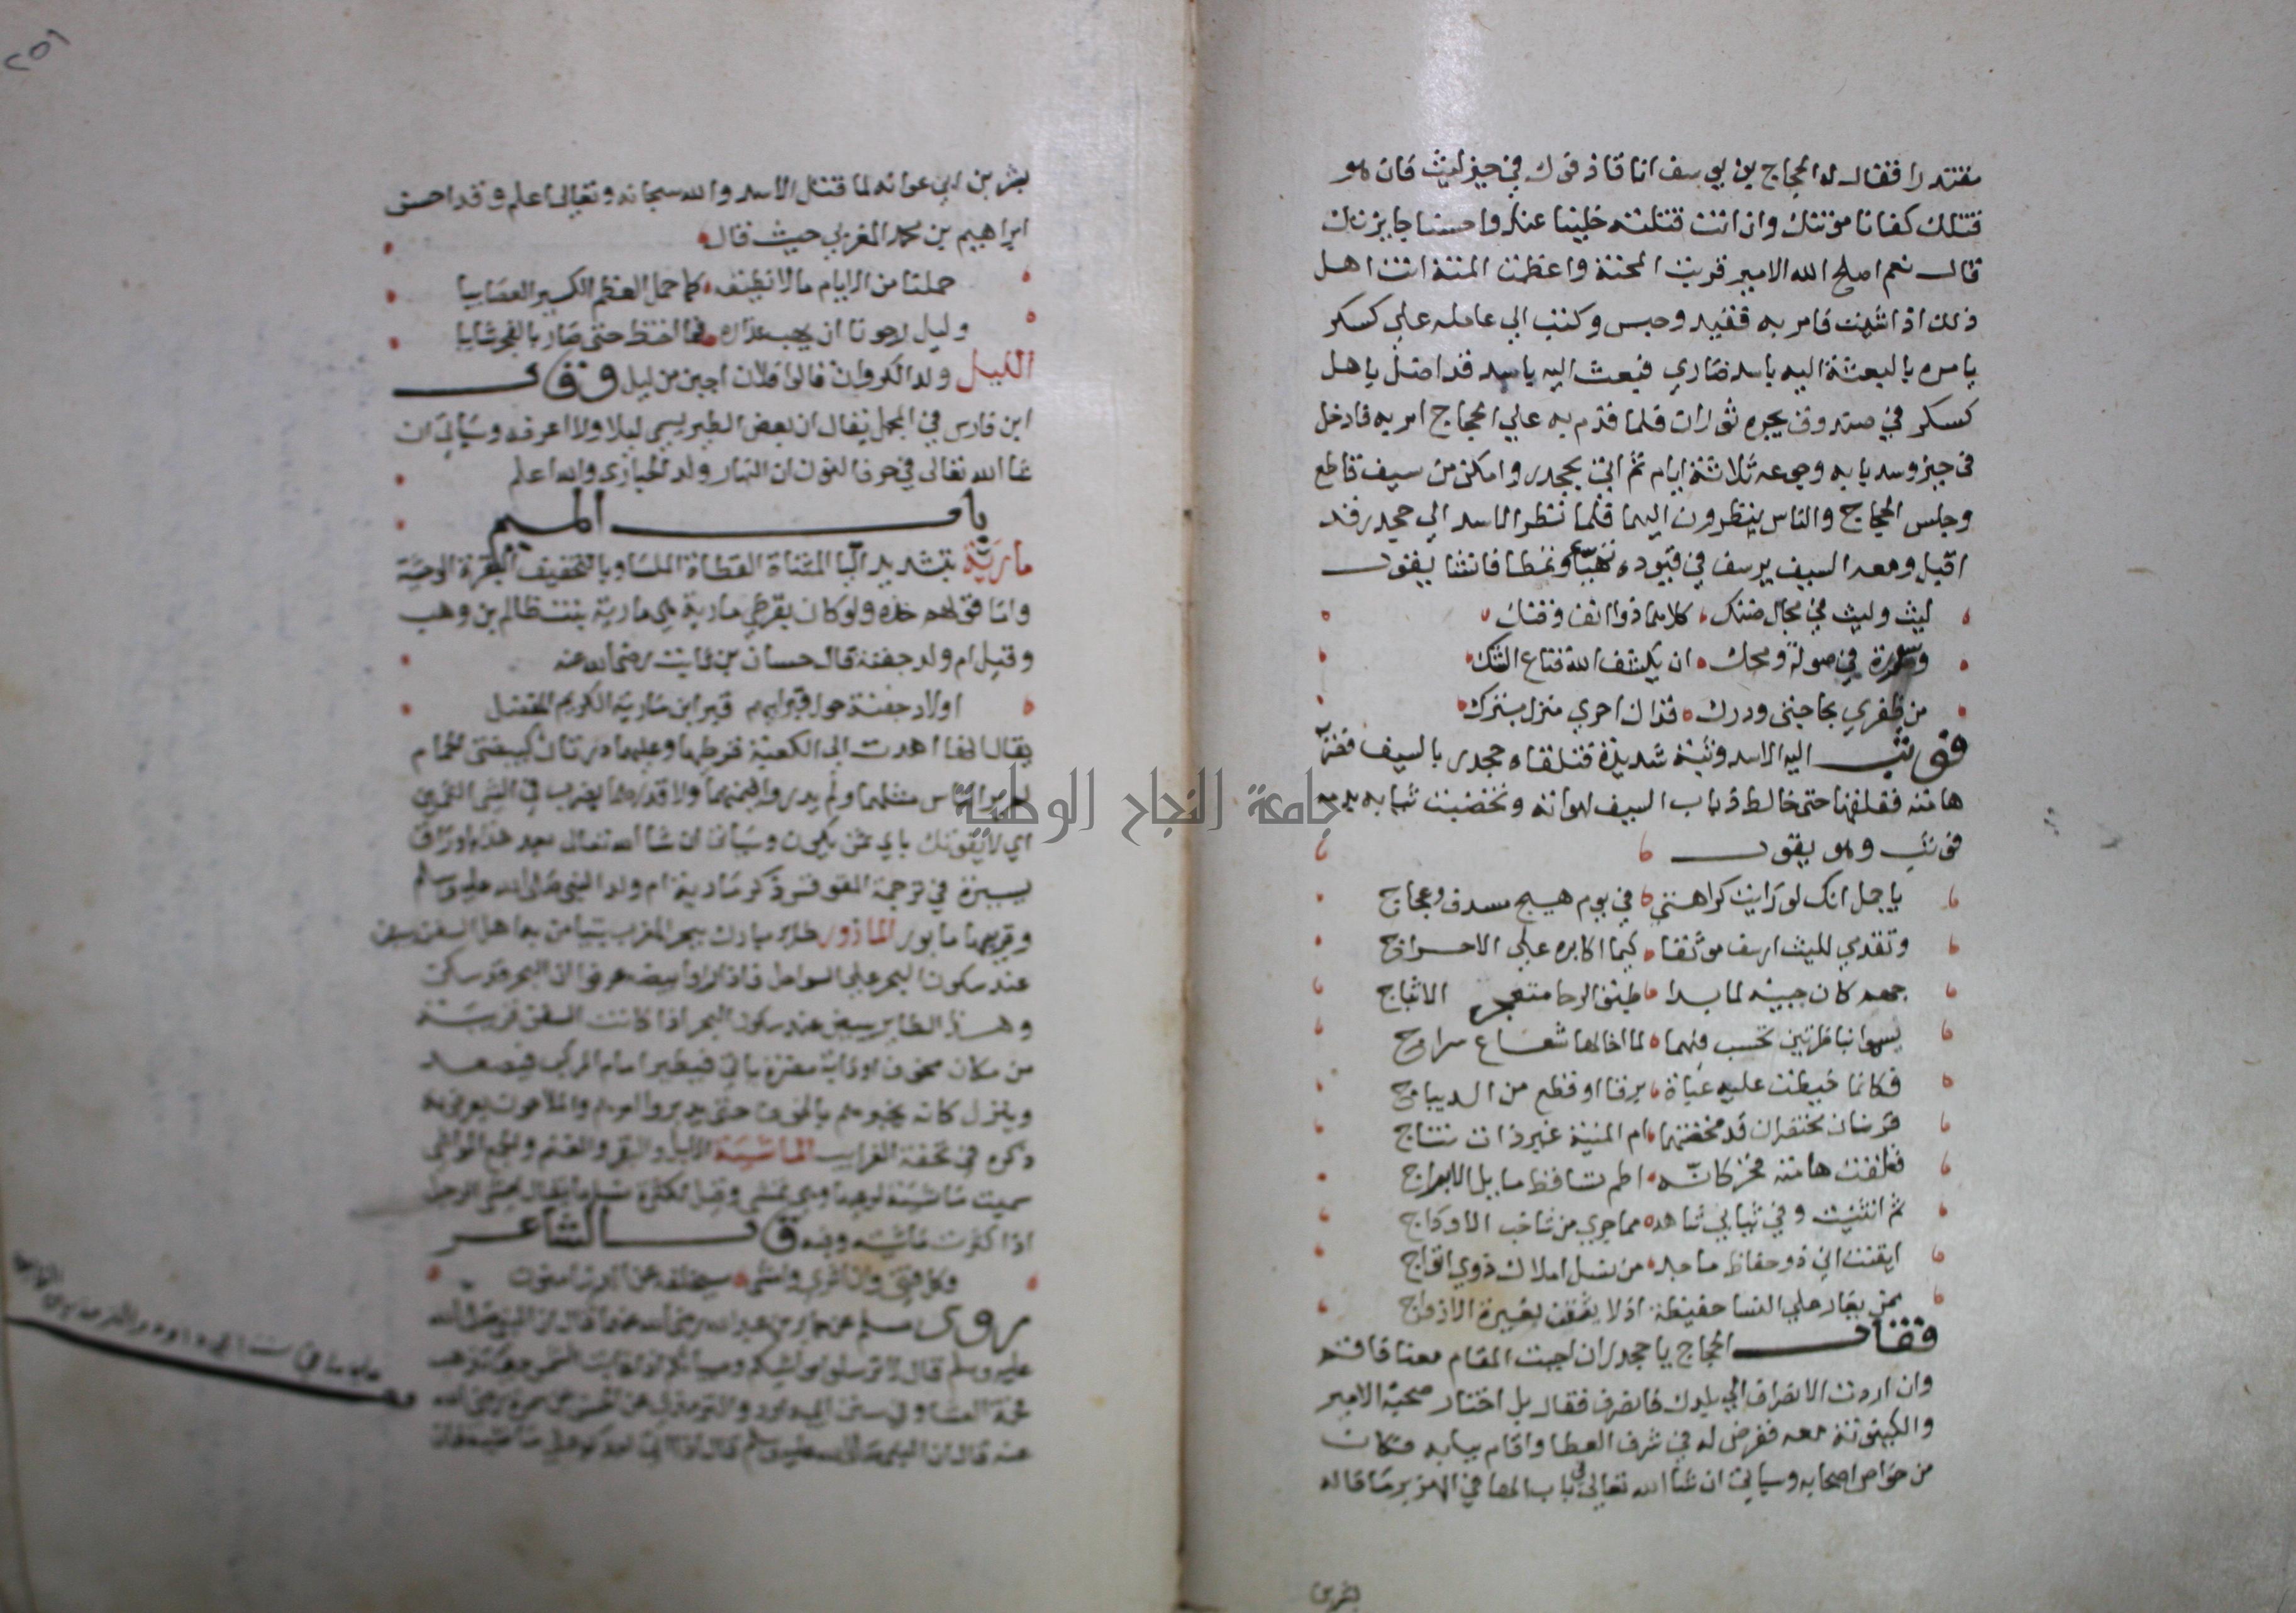 مقتدرا فقال له الحجاج بن يوسف انا قاذفوك في حيز ليث فان هو
قتلك كفانا مؤنتك وان انت قتلته خلينا عنك واحسنا جايزتك
قال نعم اصلح الله الامير قربت المحنة واعظمت المنة انت اهل
ذلك اذا شيت فامر به فقيد وحبس وكتب الي عامله علي كسكر
يامره بالبعثة اليه باسد ضاري فبعث اليه باسد قد اضل باهل
كسكر في صندوق يجره ثوران فلما قدم به علي الحجاج امر به فادخل
في حيز وسد بابه وجوعه ثلاثة ايام ثم اتي بجحدر وامكن من سيف قاطع
وجلس الحجاج والناس ينظرون اليهما فلما نظر الاسد الي جحدر وقد
اقبل ومعه السيف يرسف في قيوده تهيا وتمطا فانشا يقول
ليث وليث في مجال ضنك كلاهما ذو انف وفتك
وسورة في صولة ومحك ان يكشف الله قناع الشك
من ظفري بحاجتي ودرك فذاك احري منزل بترك
فوثب اليه الاسد وثبة شديدة فتلقاه جحدر بالسيف فضرب
هامته ففلقها حتى خالط ذباب السيف لهواته وتخضبت ثيابه بدمه
فوثب وهو يقول
يا جمل انك لو رايت كراهتي في يوم هيج مسدف وعجاج
وتقدمي لليث ارسف موثقا كيما اكابره علي الاحراج
جهم كان جبينه لما بدا طبق الرحا متفجر الاثباج
يسموا بناظرتين تحسب فيهما لما اخالها شعاع سراج
فكانما خيطت عليه عباة برقا او قطع من الديباج
قرنان مختصران قد مخضتهما ام المنية غير ذات نتاج
ففلقت هامته فخر كانه اطم تساقط مايل الابراج
ثم انثنيت وفي ثيابي شاهد مما جري من شاخب الاوداج
ايقنت اني ذو حفاظ ماجد من نسل املاك ذوي اتواج
ممن يغار علي النسا حفيظة اذ لا يثقن بغيرة الازواج
فقال الحجاج يا جحدر ان احببت المقام معنا فاقم
وان اردت الانصراف الي بلدك فانصرف فقال بل اختار صحبة الامير
والكينونة معه ففرض له في شرف العطا واقام ببابه فكان
من خواص اصحابه وسياتي ان شا الله تعالي في باب الها في الهزبر ما قاله
بشر بن
٢٥١
بشر بن ابي عوانه لما قتل الاسد والله سبحانه وتعالى اعلم وقد احسن
ابراهيم بن محمد المغربي حيث قال
حملنا من الايام ما لا نطيقه كما حمل العظم الكسير العصايبا
وليل رجونا ان يدب عذاره فما اختط حتى صار بالفجر شايبا
الليل ولد الكروان قالوا فلان اجبن من ليل وقال
ابن فارس في المجمل يقال ان بعض الطير يسمى ليلا ولا اعرفه وسياتي ان
شا الله تعالى في حرف النون ان النهار ولد الحبارى والله اعلم
باب الميم
مارية بتشديد اليا المثناة القطاة الملسا وبالتخفيف البقرة الوحشية
واما قولهم خذه ولو كان بقرطي مارية هي مارية بنت ظالم بن وهب
وقيل ام ولد جفنة قال حسان بن ثابت رضي الله عنه
اولاد جفنة حول قبر ابيهم قبر ابن مارية الكريم المفضل
يقال انها اهدت الى الكعبة قرطيها وعليهما درتان كبيضتي الحمام
لم ير الناس مثلهما ولم يدروا قيمتهما ولا قدرهما يضرب في الشي الثمين
اي لا يفوتك باي ثمن يكون وسياتي ان شا الله تعالى بعد هذا باوراق
يسيرة في ترجمة المقوقس ذكر مارية ام ولد النبي صلى الله عليه وسلم
وقريبها مابور المازور طاير مبارك ببحر المغرب يتيامن به اهل السفن يبيض
عند سكون البحر على السواحل فاذا راوا بيضه عرفوا ان البحر قد سكن
وهذا الطاير يبيض عند سكون البحر اذا كانت السفن قريبة
من مكان مخوف او دابة مضرة ياتي فيطير امام المركب فيصعد
وينزل كانه يخبرهم بالخوف حتى يدبروا امرهم والملاحون يعرفونه
ذكره في تحفة الغرايب الماشية الابل والبقر والغنم والجمع المواشي
سميت ماشية لرعيها وهي تمشي وقيل لكثرة نسلها يقال امشى الرجل
اذا كثرت ماشيته وفيه قال الشاعر
وكل فتى وان اثرى وامشى ستخلجه عن الدنيا منون
روى مسلم عن جابر بن عبد الله رضي الله عنهما قال ان النبي صلى الله
عليه وسلم قال لا ترسلوا مواشيكم وصبيانكم اذا غابت الشمس حتى تذهب
فحمة العشا وفي سنن ابي داود والترمذي عن الحسن عن سمرة رضي الله
عنه قال ان النبي صلى الله عليه وسلم قال اذا اتى احدكم على ماشية فان
جامعة النجاح الوطنية